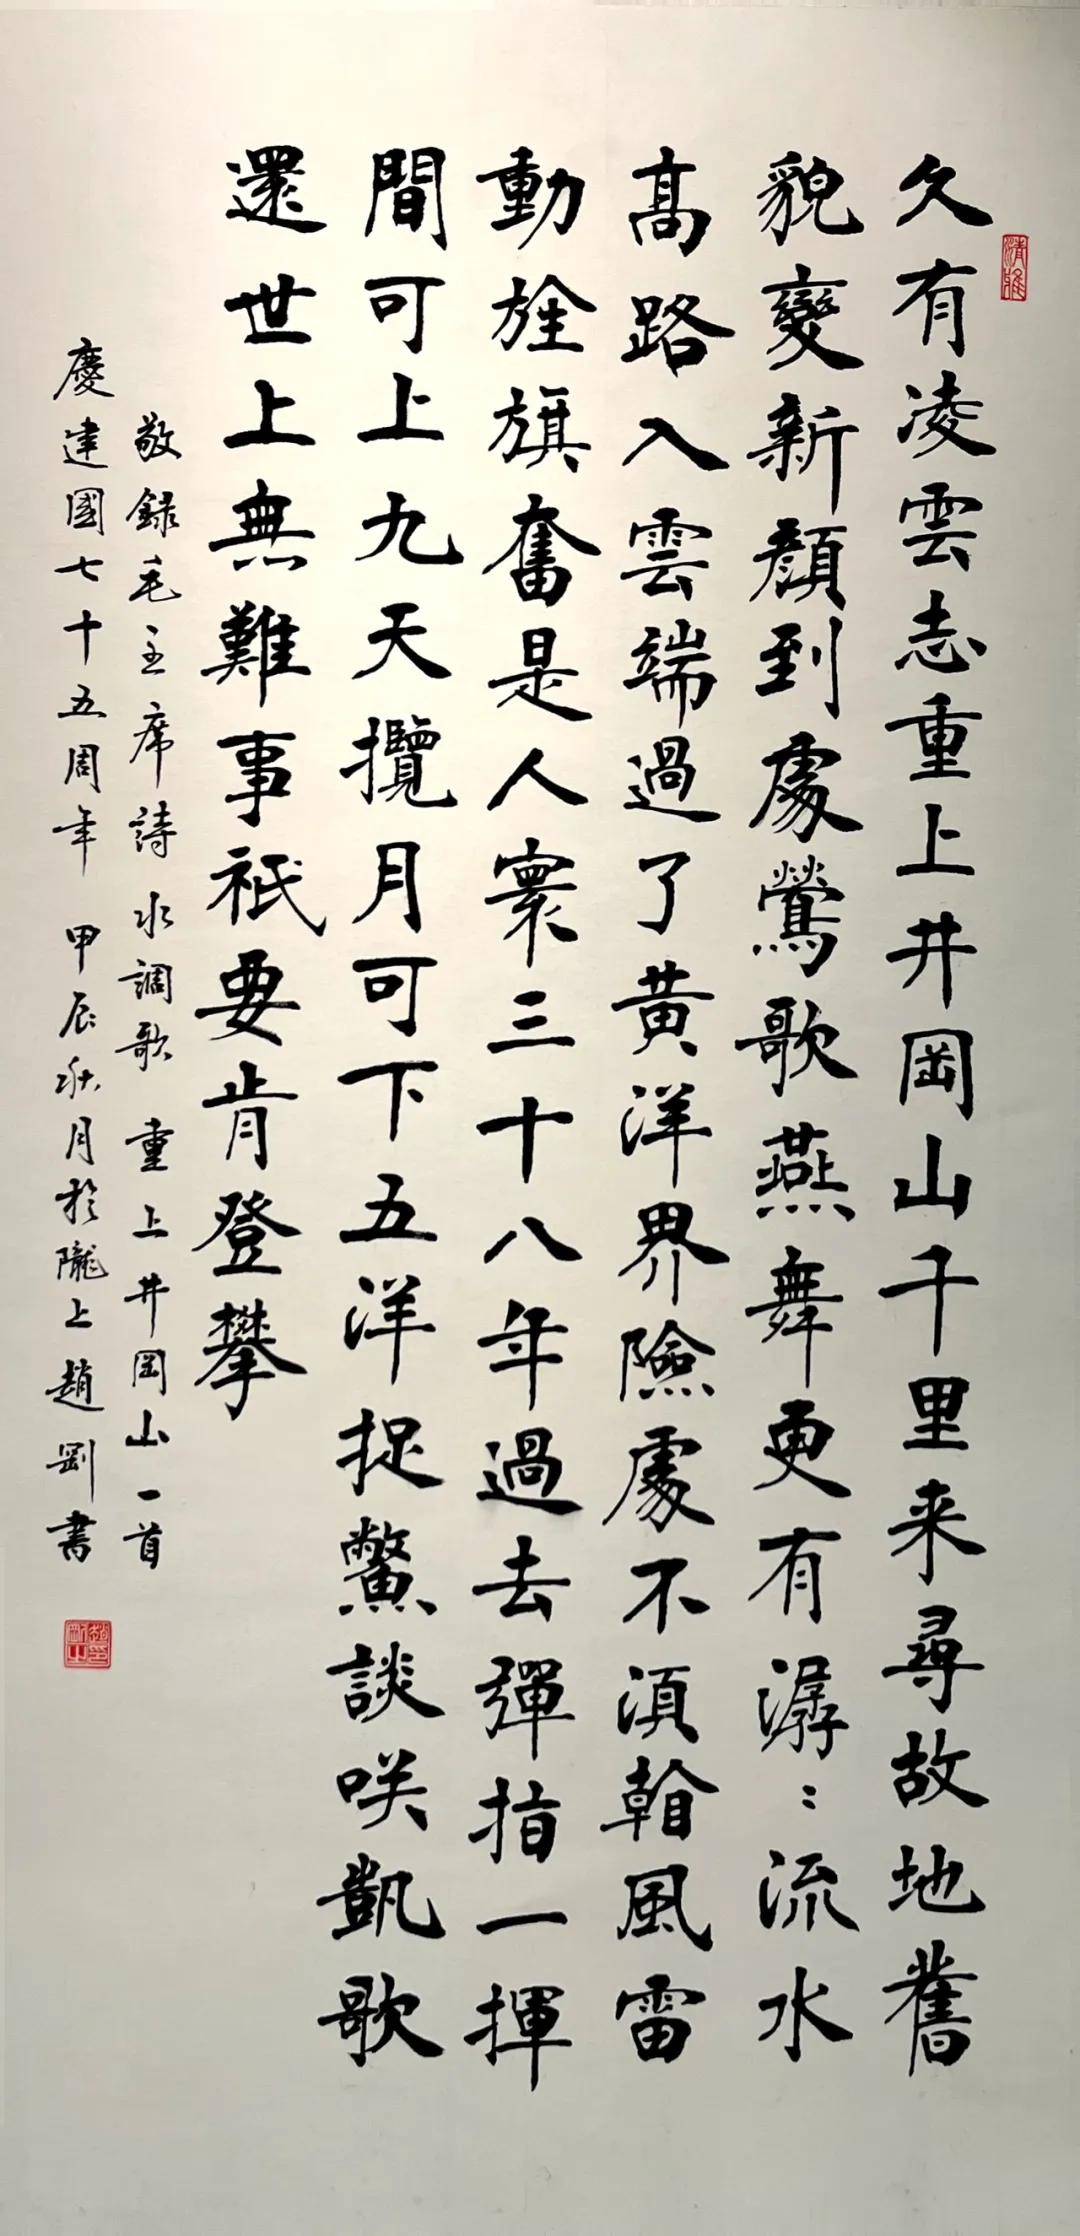 久有凌雲志重上井岡山千里来尋故地舊
貌變新顏到處鶯歌燕舞更有潺〻流水
髙路入雲端過了黄洋界險處不湏㫺風雷
動旌旗奮是人寰三十八年過去彈指一揮
間可上九天攬月可下五洋捉鱉談咲凱歌
還世上無難事祇要肯登攀
敬録毛主席詩水調歌重上井岡山一首
慶建國七十五周年甲辰秋月於隴上趙剛書
清雅